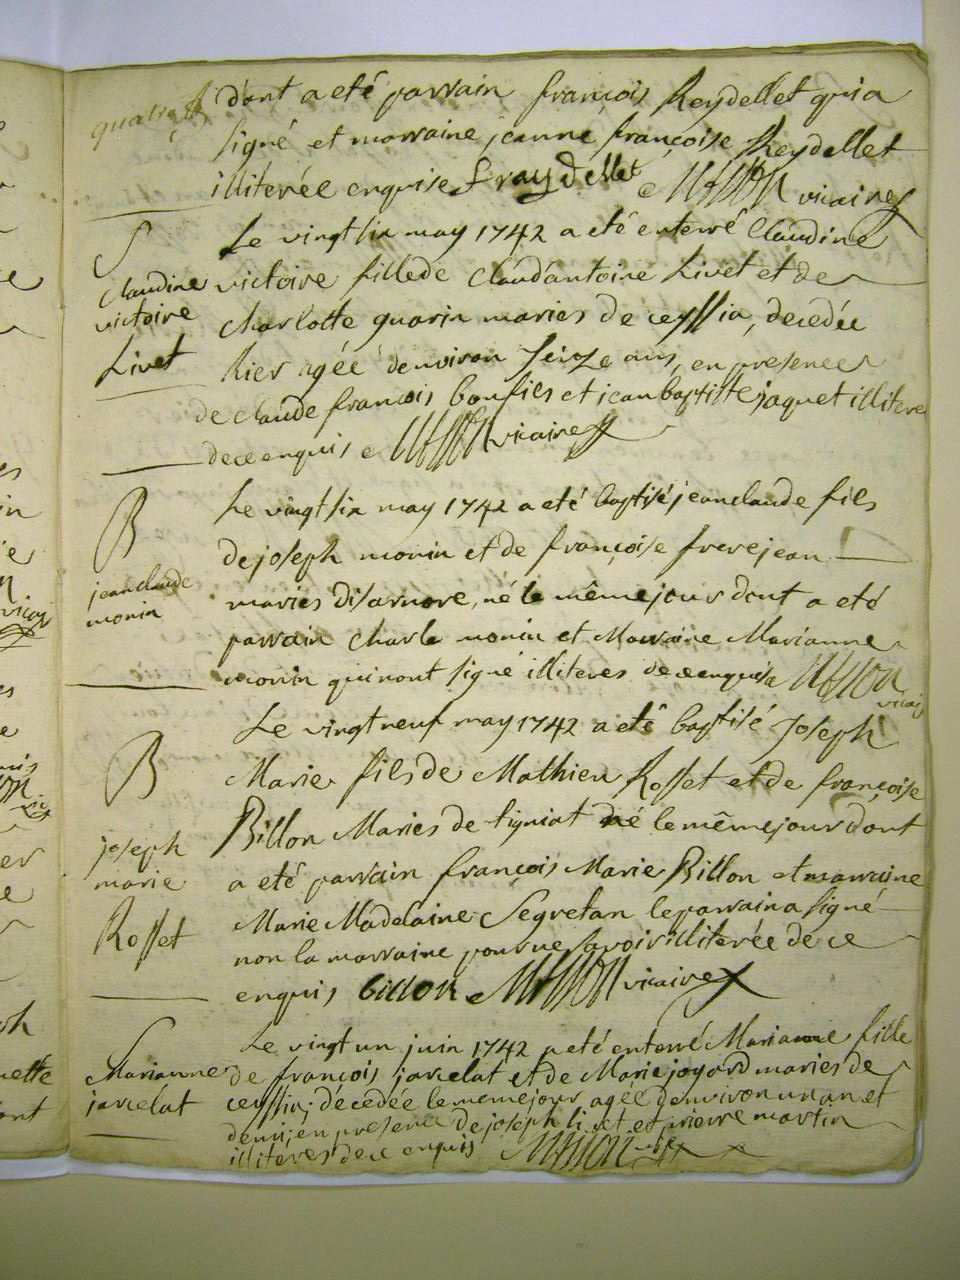 dont a eté parrain françois Reydellet qui a
signé et marraine jeanne françoise Reydellet
illiterée enquise f raydellet vicaire
S
Claudine
victoire
Livet
Le vingt six may 1742 a eté enterré Claudine
victoire fille de Claud antoine Livet et de
charlotte guarin maries de ceyssia, decedée
hier agéé denviron seize ans, en presence
de claude francois bonfils et jean baptiste jaquet illiteres
de ce enquis vicaire
B
jean claude
monin
Le vingt six may 1742 a eté baptisé jean claude fils
de joseph monin et de françoise frerejean
maries disarnore, né le même jour dont a eté
parrain Charle monin et Marraine Marianne
monin qui nont signé illiteres de ce enquis
B
joseph
marie
Rosset
Le vingt neuf may 1742 a eté baptisé Joseph
Marie fils de Mathieu Rosset et de françoise
Billon Maries de tigniat né le même jour dont
a eté parrain françois Marie Billon et marraine
Marie Madelaine Segretan le parrain a signé
non la marraine pour ne savoir illiterée de ce
enquis billon vicaire
Marianne
jarcelat
Le vingt un juin 1742 a eté enterré Marianne fille
de françois jarcelat et de Marie joyard maries de
ceyssia, décedée le meme jour agéé denviron un an et
demi, en presence de joseph livet et pierre martin
illiteres de ce enquis